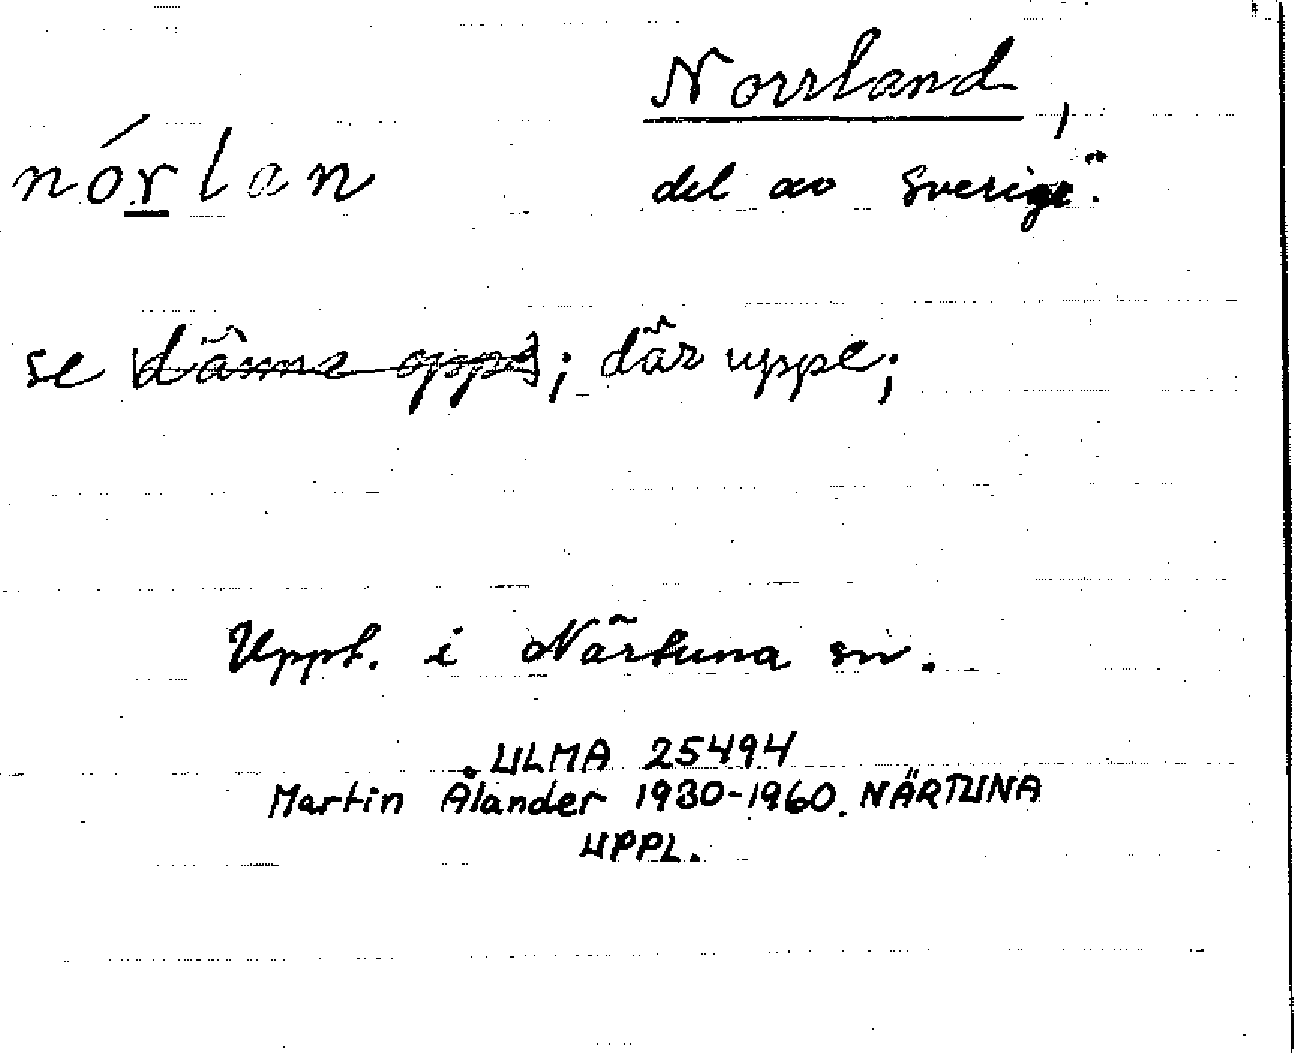 Norrland,
nórlan del av Sverige".
se dänna oppe; där uppe;
Uppt. i Närtuna sn.
ULMA 25494
Martin Ålander 1930-1960. NÄRTUNA
UPPL.